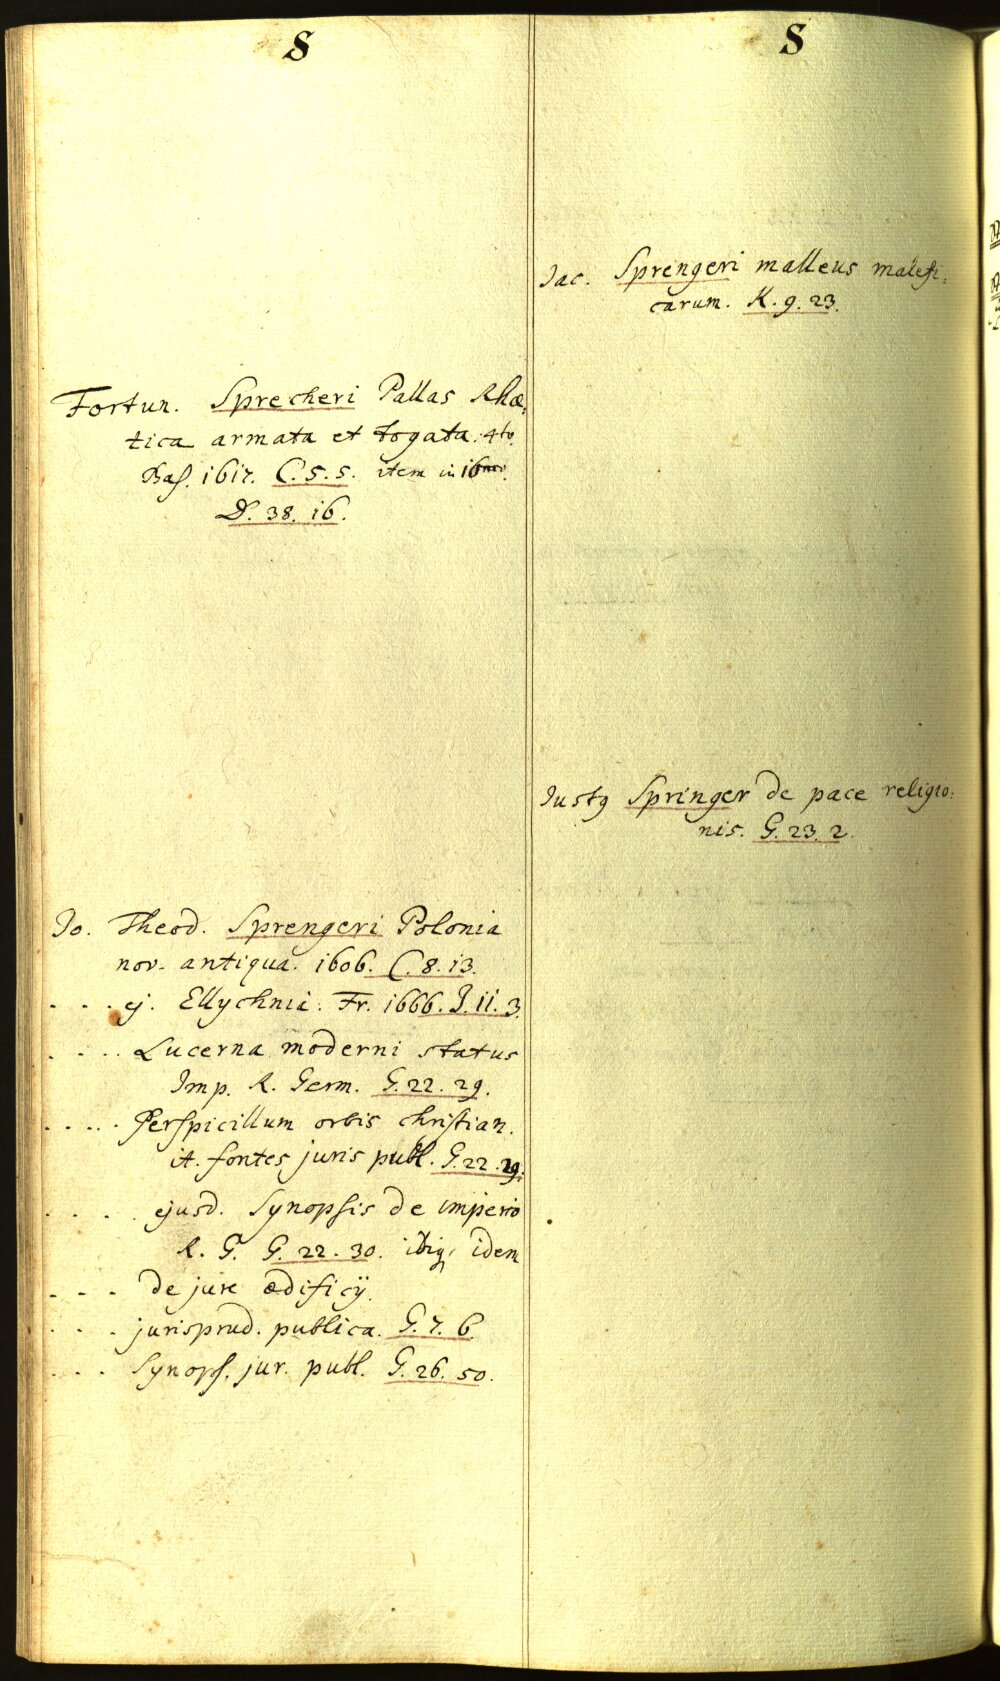 S
Fortun. Sprecheri Pallas Rhæ,
tica armata et togata. 4to.
Bas. 1617. C. 5. 5. item in 16mo.
D. 38. 16.
Jo. Theod. Sprengeri Polonia
nov. antiqua. 1606. C. 8. 13.
. . . ej. Ellychnia. Fr. 1666. J. 11. 3.
. . . . Lucerna moderni status
Imp. R. Germ. G. 22. 29.
. . . . . Perspicillum orbis christian.
it. fontes juris publ. G. 22. 29.
. . . . ejusd. Synopsis de imperio
R. G. G. 22. 30. ibiq, idem
. . . de jure ædificÿ.
. . . . jurisprud. publica. G. 7. 6
. . . Synops. jur. publ. G. 26. 50.
S
Jac. Sprengeri malleus malefi,
carum. K. 9. 23.
Justq Springer de pace religio:
nis. G. 23. 2.